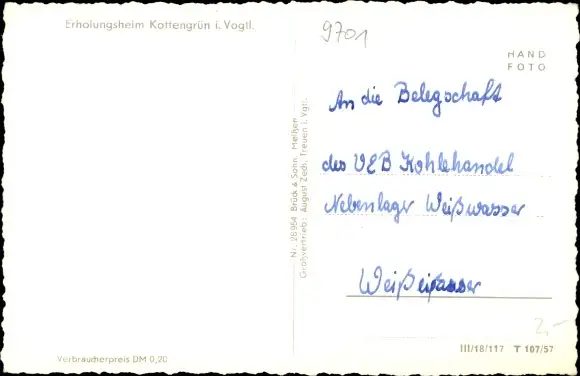 Erholungsheim Kottengrün i. Vogtl.
9701
HAND
FOTO
An die Belegschaft
des VEB Kohlehandel
Nebenlager Weißwasser
Weißwasser
Nr. 26964 Brück & Sohn, Meißen
Großvertrieb: August Zech, Treuen i. Vgtl.
2,-
III/18/117 T 107/57
Verbraucherpreis DM 0,20